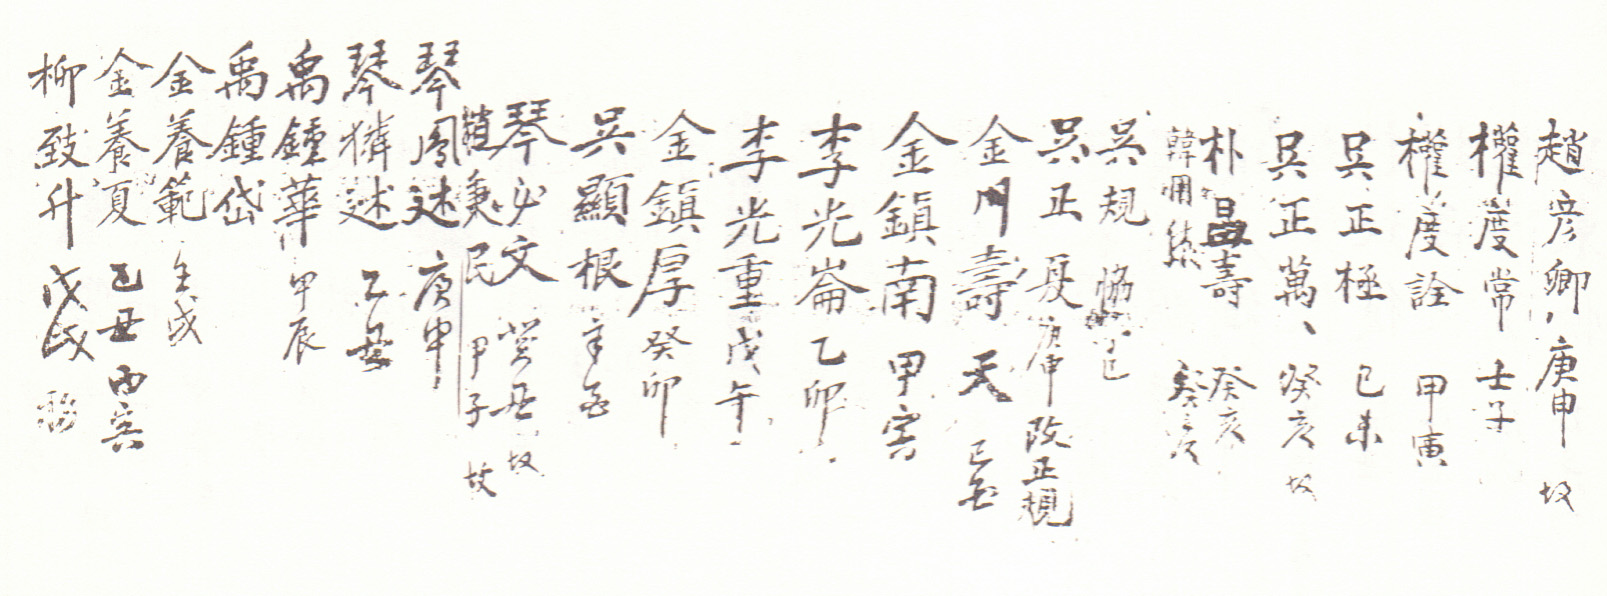 趙彦卿 庚申 故
權度常 壬子
權度詮 甲寅
吳正極 己未
吳正萬 癸亥 故
朴昌壽 癸亥
韓 癸亥
吳規
吳正夏 庚申 改正規
金門壽 天 己
金鎭南 甲寅
李光崙 乙卯
李光重 戊午
金鎭厚 癸卯
吳顯根 辛
琴必文 癸丑 故
趙秉民 甲子 故
琴鳳述 庚申
琴獜述 乙丑
禹鍾華 甲辰
禹鍾岱
金養範 壬戌
金養夏 乙丑 丙寅
柳致升 戊戌 移